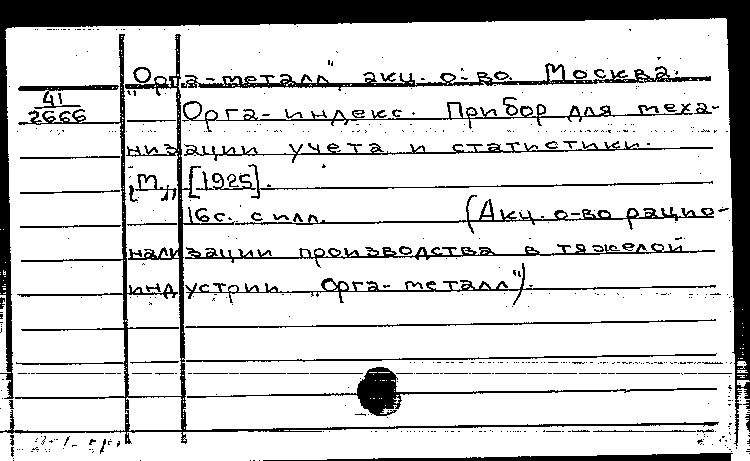 „Орга-металл", акц. о-во. Москва.
41
2666
Орга-индекс. Прибор для меха-
низации учета и статистики.
[М.,] [1925].
16с. с илл. (Акц. о-во рацио-
нализации производства в тяжелой
индустрии „Орга-металл").